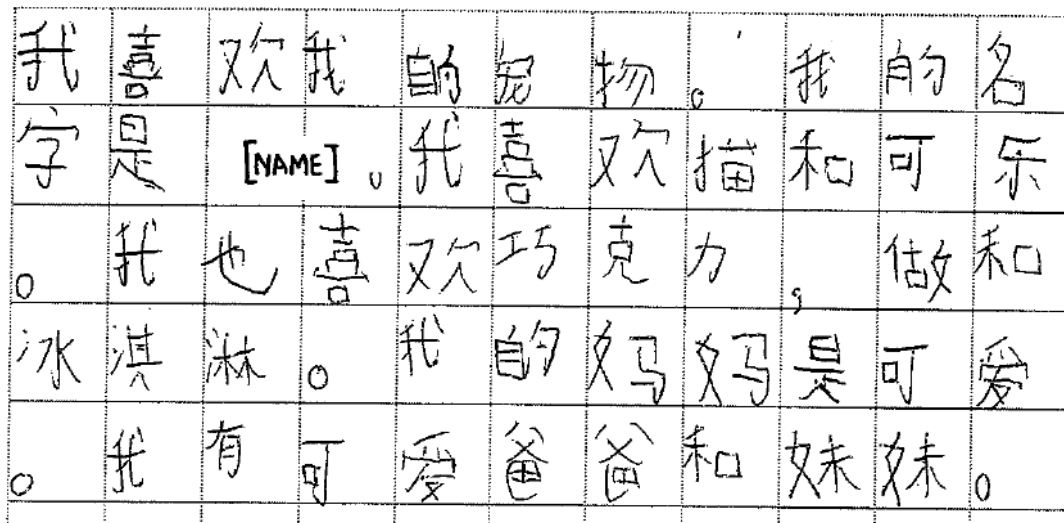 我喜欢我的宠物。我的名
字是[NAME]。我喜欢描和可乐
。我也喜欢巧克力,做和
冰淇淋。我的妈妈是可爱
。我有可爱爸爸和妹妹。